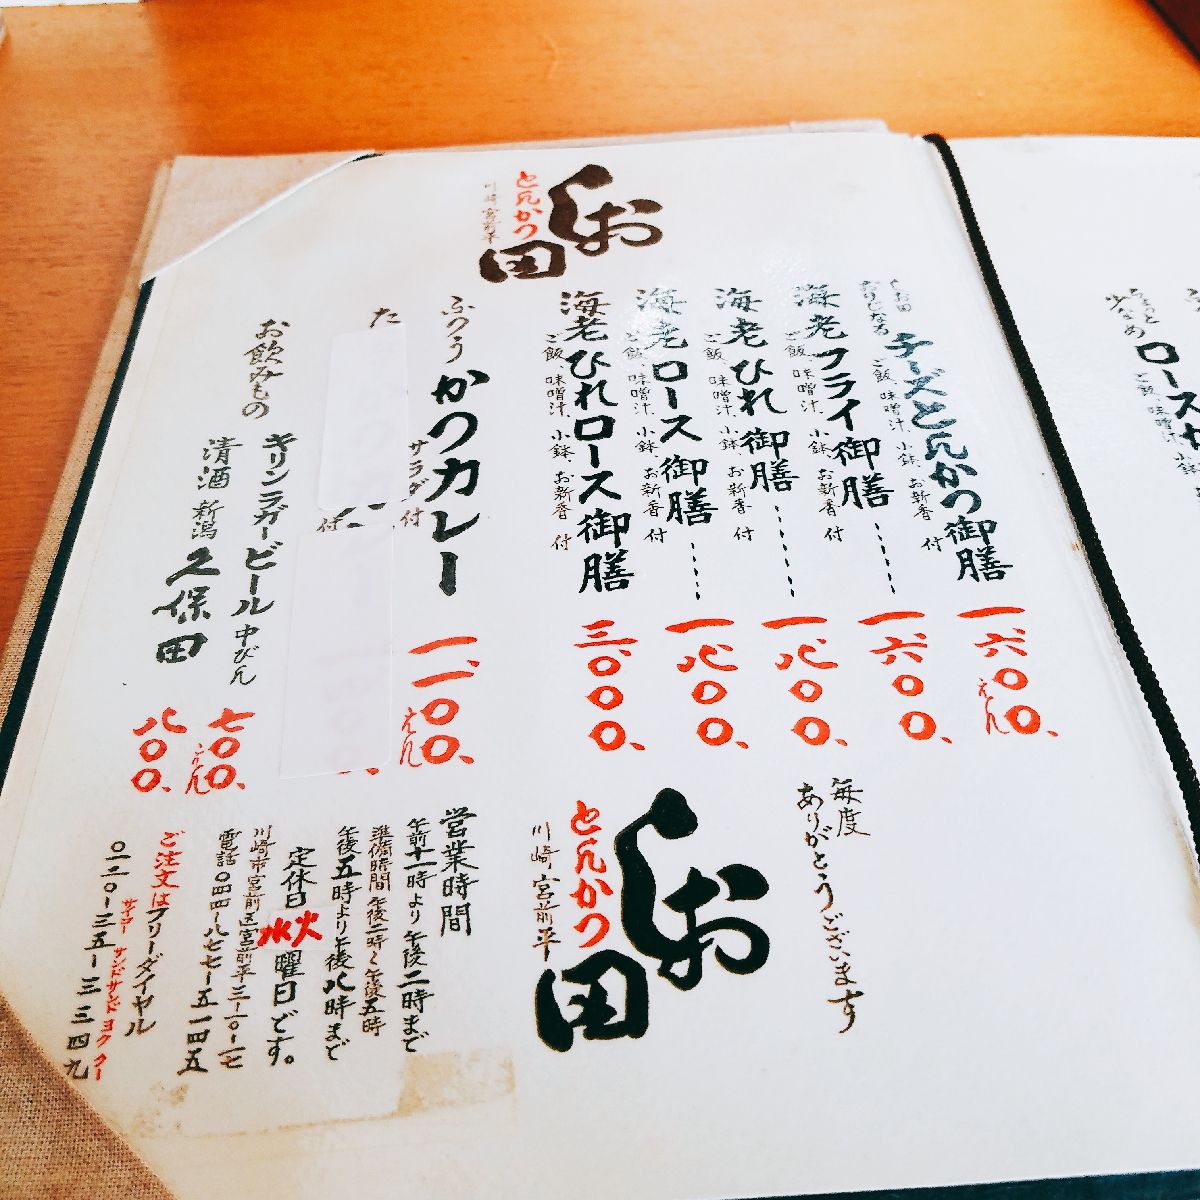 しお田
とんかつ
川崎 宮前平
しお田
おりじなる
チーズとんかつ御膳
ご飯、味噌汁、小鉢、お新香 付
一、六〇〇、
えん
海老フライ御膳
ご飯、味噌汁、小鉢、お新香 付
一、六〇〇、
海老ひれ御膳
ご飯、味噌汁、小鉢、お新香 付
一、八〇〇、
海老ロース御膳
ご飯、味噌汁、小鉢、お新香 付
一、八〇〇、
海老ひれロース御膳
ご飯、味噌汁、小鉢、お新香 付
三、〇〇〇、
ふつうかつカレー
サラダ付
一、一〇〇、
えん
た
付
お飲みもの
キリンラガービール 中びん
七〇〇、
えん
清酒 新潟 久保田
八〇〇、
毎度
ありがとうございます
しお田
とんかつ
川崎 宮前平
営業時間
午前十一時より午後二時まで
準備時間 午後二時〜午後五時
午後五時より午後八時まで
定休日 火水曜日です。
川崎市宮前区宮前平三-十-十七
電話〇四四-八七七-五一四五
ご注文はフリーダイヤル
サイコー サンドサンド ヨククー
〇一二〇-三五-三三四九
ちょっと
少なめ
ロースか
ご飯、味噌汁、小鉢